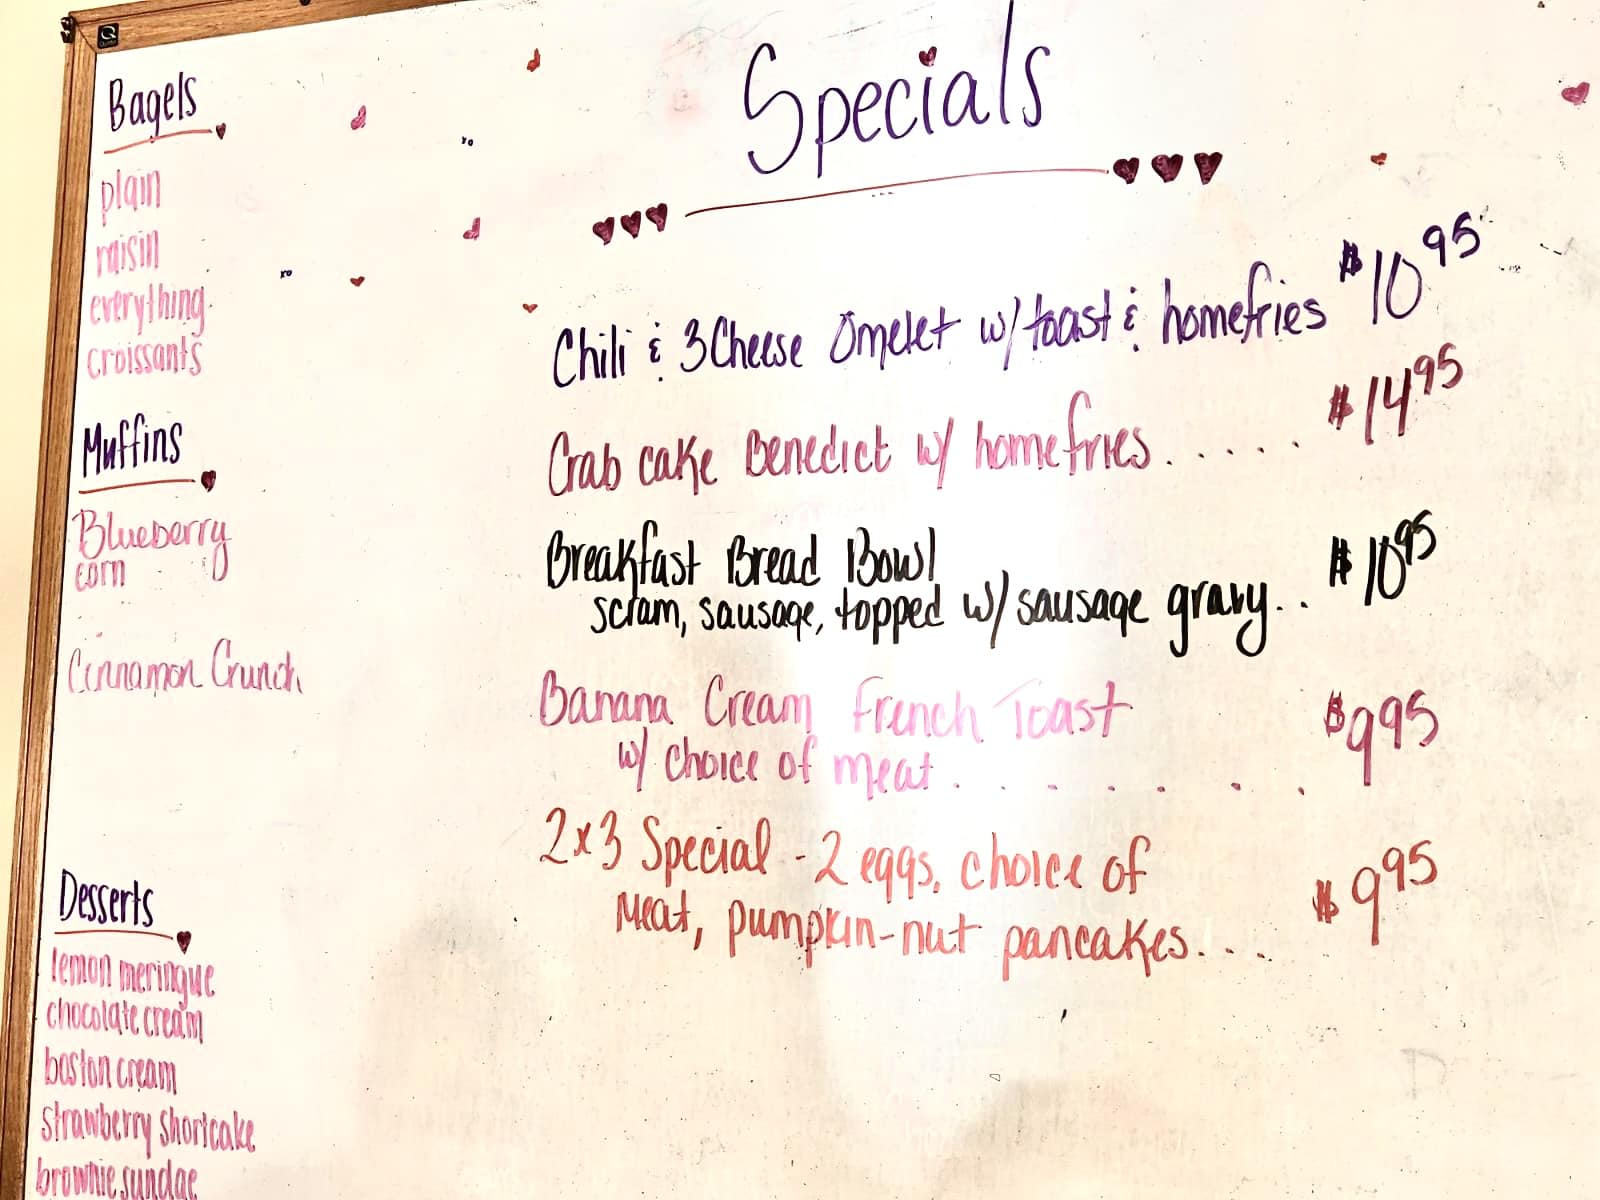 Bagels
plain
raisin
everything
croissants
Muffins
Blueberry
corn
Cinnamon Crunch
Desserts
lemon meringue
chocolate cream
boston cream
strawberry shortcake
brownie sundae
Specials
Chili & 3 Cheese Omelet w/ toast & homefries $10.95
Crab cake Benedict w/ homefries...... $14.95
Breakfast Bread Bowl
scram, sausage, topped w/ sausage gravy.. $10.95
Banana Cream French Toast
w/ choice of meat....... $9.95
2x3 Special - 2 eggs, choice of
meat, pumpkin-nut pancakes.... $9.95